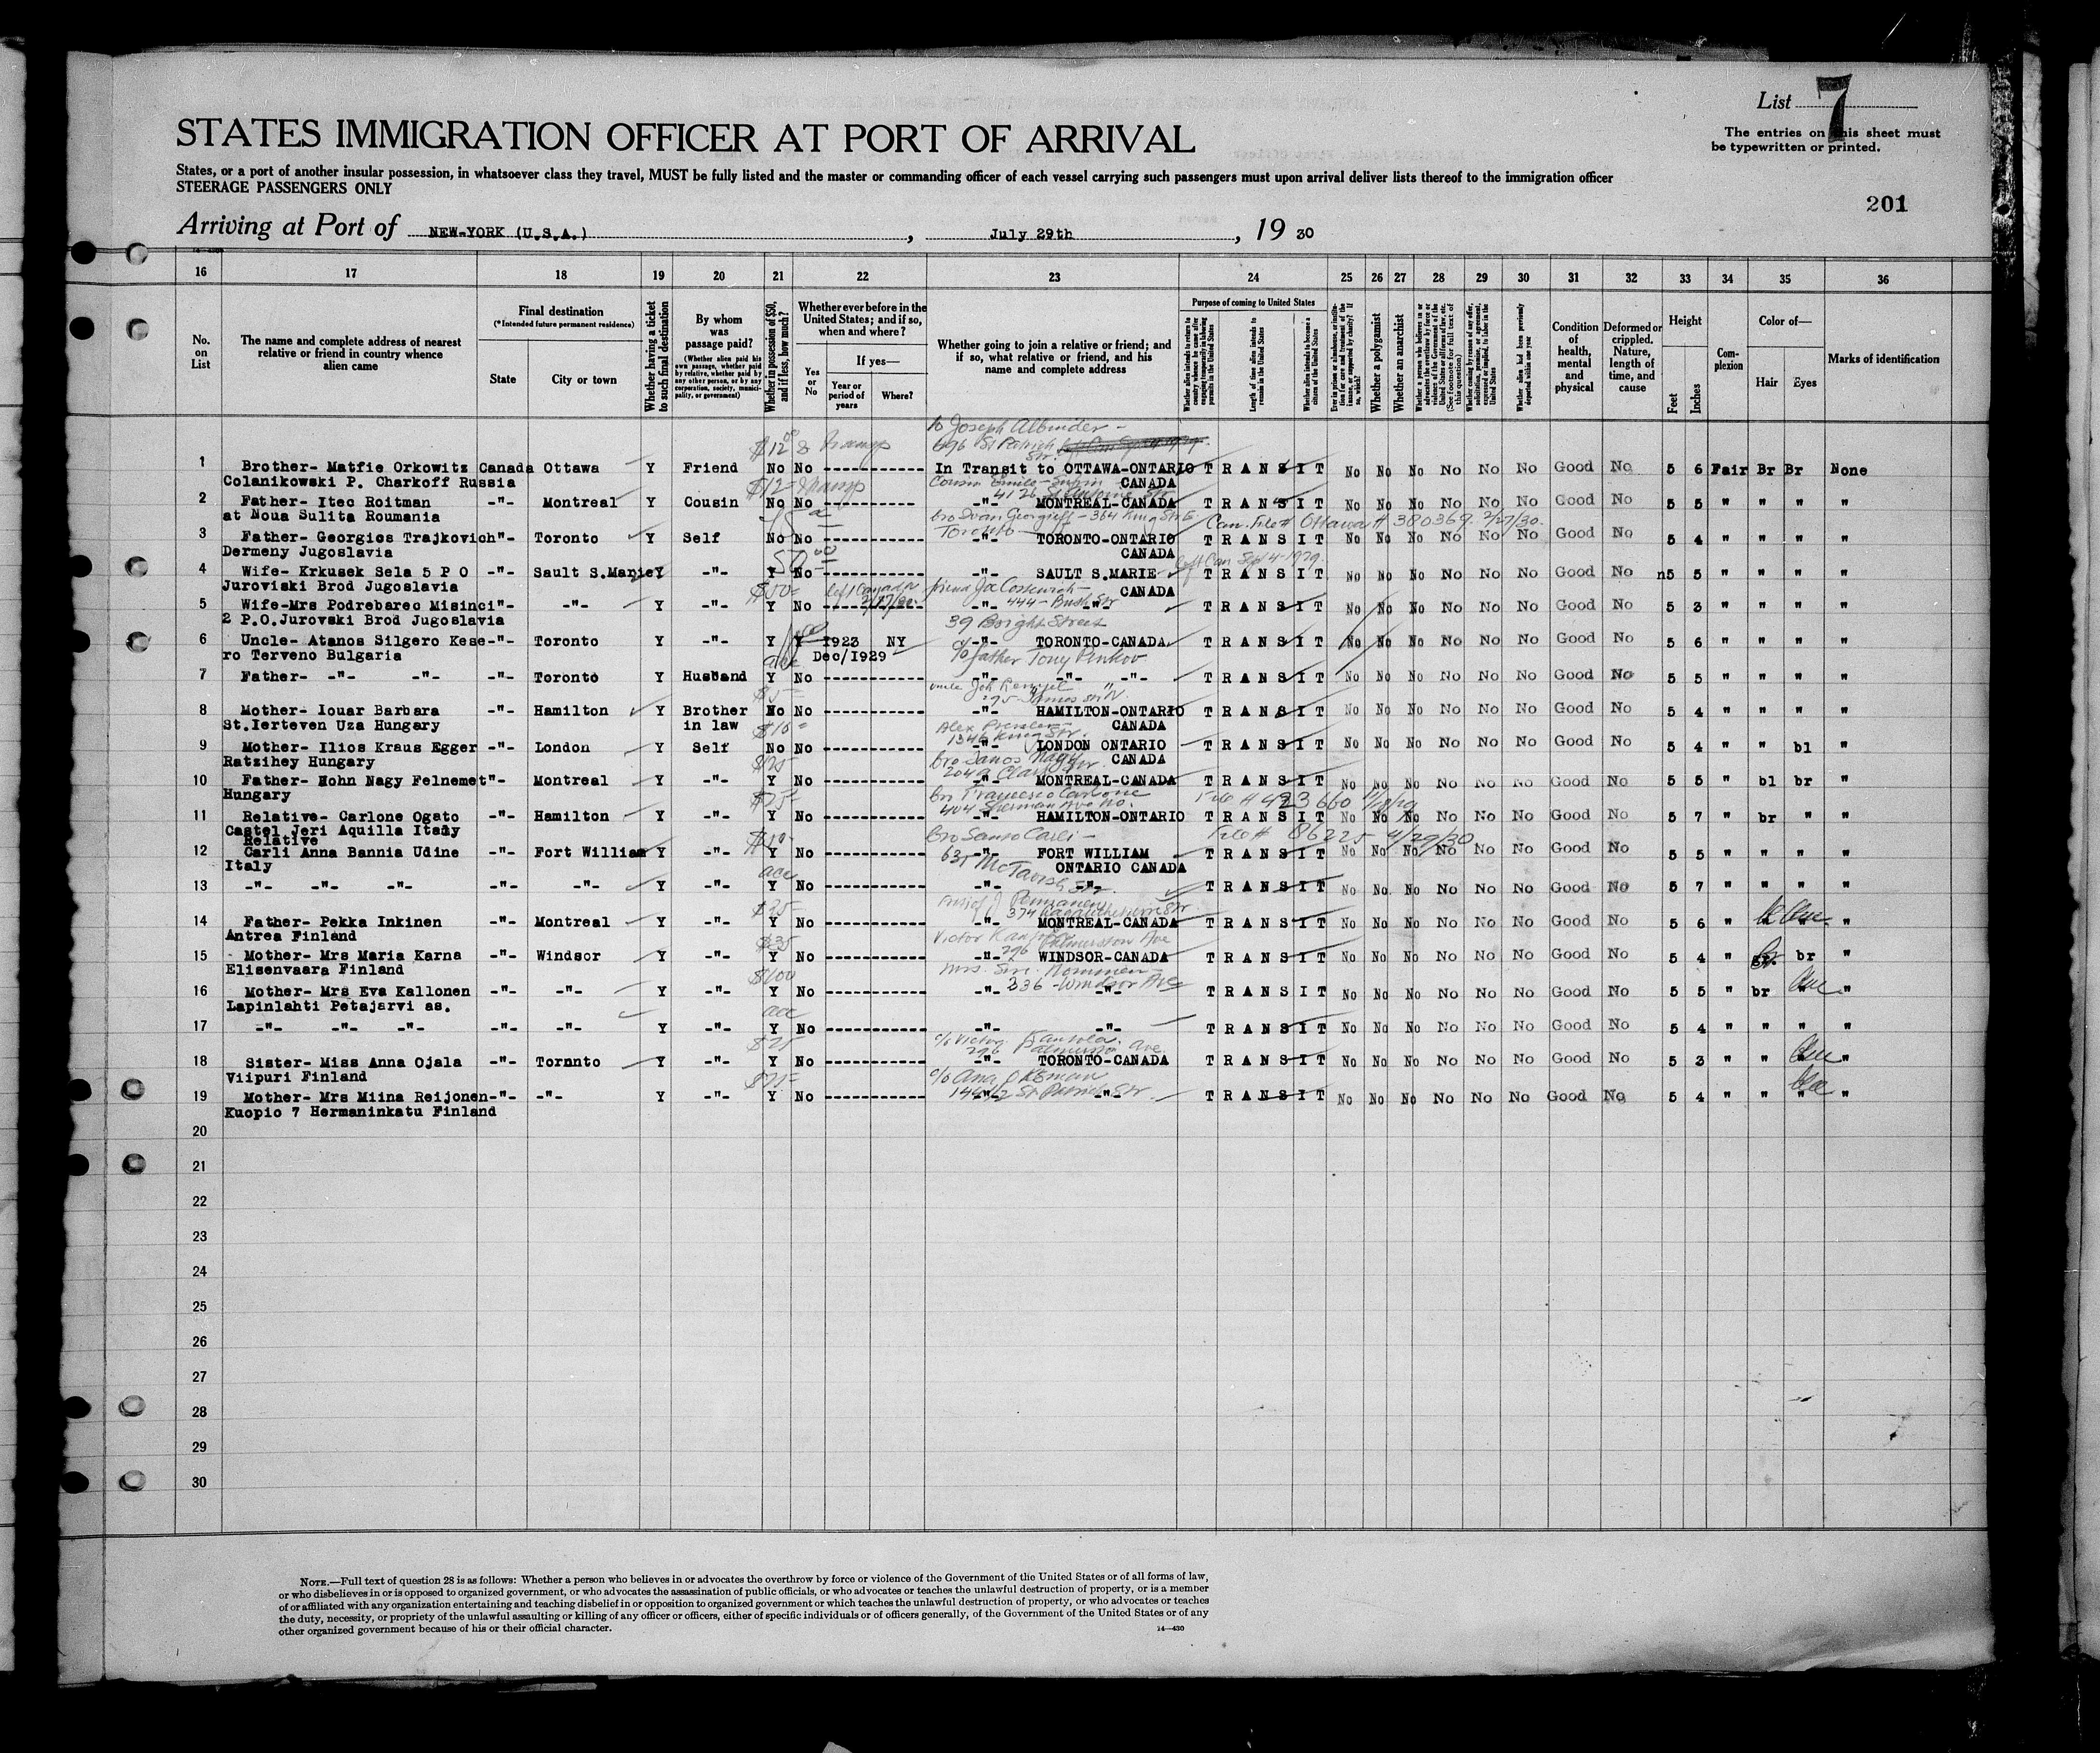 List 7
The entries on this sheet must
be typewritten or printed.
STATES IMMIGRATION OFFICER AT PORT OF ARRIVAL
States, or a port of another insular possession, in whatsoever class they travel, MUST be fully listed and the master or commanding officer of each vessel carrying such passengers must upon arrival deliver lists thereof to the immigration officer
STEERAGE PASSENGERS ONLY
201
Arriving at Port of NEW-YORK (U.S.A.), July 29th, 19 30
16 17 18 19 20 21 22 23 24 25 26 27 28 29 30 31 32 33 34 35 36
No. on List
The name and complete address of nearest relative or friend in country whence alien came
Final destination
(*Intended future permanent residence)
State City or town
Whether having a ticket to such final destination
By whom was passage paid?
(Whether alien paid his own passage, whether paid by relative, whether paid by any other person, or by any corporation, society, municipality, or government)
Whether in possession of $50, and if less, how much?
Whether ever before in the United States; and if so, when and where?
Yes or No
If yes—
Year or period of years Where?
Whether going to join a relative or friend; and if so, what relative or friend, and his name and complete address
Purpose of coming to United States
Whether alien intends to return to country whence he came after engaging temporarily in laboring pursuits in the United States
Length of time alien intends to remain in the United States
Whether alien intends to become a citizen of the United States
Whether a polygamist
Whether an anarchist
Condition of health, mental and physical
Deformed or crippled. Nature, length of time, and cause
Height
Feet Inches
Complexion
Color of—
Hair Eyes
Marks of identification
to Joseph Albinder -
$12 00 & transp 696 St Patrick Str.
1 Brother- Matfie Orkowitz Canada Ottawa Y Friend No No ------------ In Transit to OTTAWA-ONTARIO TRANSIT No No No No No No Good No 5 6 Fair Br Br None
Colanikowski P. Charkoff Russia CANADA
$12- transp Cousin 4126
2 Father- Itec Roitman -"- Montreal Y Cousin No No ------------ -"- MONTREAL-CANADA TRANSIT No No No No No No Good No 5 5 " " " "
at Noua Sulita Roumania
bro Ivan Georgieff - 364 King Str E Toronto Can. File # Ottawa # 380369. 2/27/30.
3 Father- Georgios Trajkovich -"- Toronto Y Self No No ------------ -"- TORONTO-ONTARIO TRANSIT No No No No No No Good No 5 4 " " " "
Dermeny Jugoslavia CANADA
50 00 left Can Sept 4-1929
4 Wife- Krkusek Sela 5 P O -"- Sault S.Marie Y -"- Y No ------------ -"- SAULT S.MARIE TRANSIT No No No No No No Good No n5 5 " " " "
Juroviski Brod Jugoslavia CANADA
$50- left Canada friend Joe
5 Wife-Mrs Podrebarec Misinci -"- -"- Y -"- Y No ------------ -"- 444 - Bush Str -"- TRANSIT No No No No No No Good No 5 3 " " " "
2 P.O.Jurovski Brod Jugoslavia
39 Bright Street
6 Uncle- Atanos Silgero Kese -"- Toronto Y -"- Y Y 1923 NY -"- TORONTO-CANADA TRANSIT No No No No No No Good No 5 6 " " " "
ro Terveno Bulgaria Dec/1929 c/o father Tony Penkov
7 Father- -"- -"- -"- Toronto Y Husband Y No ------------ -"- -"- -"- TRANSIT No No No No No No Good No 5 5 " " " "
$5- uncle Joh 295 James str N.
8 Mother- Iouar Barbara -"- Hamilton Y Brother No No ------------ -"- HAMILTON-ONTARIO TRANSIT No No No No No No Good No 5 4 " " " "
St.Ierteven Uza Hungary in law CANADA
Alex 1346 King Str.
9 Mother- Ilios Kraus Egger -"- London Y Self No No ------------ -"- LONDON ONTARIO TRANSIT No No No No No No Good No 5 4 " " bl "
Ratzihey Hungary CANADA
$25 bro Janos Nagy 204a Clark Str.
10 Father- Nohn Nagy Felnemet"- Montreal Y -"- Y No ------------ -"- MONTREAL-CANADA TRANSIT No No No No No No Good No 5 5 " bl br "
Hungary
$25- bro Francesco Carlone 404 Sherman Ave No. File # 423660
11 Relative- Carlone Ogato -"- Hamilton Y -"- Y No ------------ -"- HAMILTON-ONTARIO TRANSIT No No No No No No Good No 5 7 " br " "
Castel Jeri Aquilla Itaay
Relative Bro Santo Carli - File # 86225 4/29/30
12 Carli Anna Bannia Udine -"- Fort William Y -"- Y No ------------ -"- FORT WILLIAM TRANSIT No No No No No No Good No 5 5 " " " "
Italy 635 McTavish Str. ONTARIO CANADA
13 -"- -"- -"- -"- -"- Y -"- Y No ------------ -"- -"- TRANSIT No No No No No No Good No 5 7 " " " "
$25-
14 Father- Pekka Inkinen -"- Montreal Y -"- Y No ------------ -"- MONTREAL-CANADA TRANSIT No No No No No No Good No 5 6 " "
Antrea Finland
$35 Victor 296 Palmerston Ave
15 Mother- Mrs Maria Karna -"- Windsor Y -"- Y No ------------ -"- WINDSOR-CANADA TRANSIT No No No No No No Good No 5 4 " br "
Elisenvaara Finland
$100 Mrs. 336 - Windsor Ave
16 Mother- Mrs Eva Kallonen -"- -"- Y -"- Y No ------------ -"- -"- TRANSIT No No No No No No Good No 5 5 " br "
Lapinlahti Petajarvi as.
17 -"- -"- -"- -"- -"- Y -"- Y No ------------ -"- -"- TRANSIT No No No No No No Good No 5 4 " " " "
$25 c/o Victor 296 Ave
18 Sister- Miss Anna Ojala -"- Tornnto Y -"- Y No ------------ -"- TORONTO-CANADA TRANSIT No No No No No No Good No 5 3 " " "
Viipuri Finland
$25- c/o
19 Mother- Mrs Miina Reijonen-"- -"- Y -"- Y No ------------ -"- -"- TRANSIT No No No No No No Good No 5 4 " " " "
Kuopio 7 Hermaninkatu Finland
20
21
22
23
24
25
26
27
28
29
30
NOTE.—Full text of question 28 is as follows: Whether a person who believes in or advocates the overthrow by force or violence of the Government of the United States or of all forms of law,
or who disbelieves in or is opposed to organized government, or who advocates the assassination of public officials, or who advocates or teaches the unlawful destruction of property, or is a member
of or affiliated with any organization entertaining and teaching disbelief in or opposition to organized government or which teaches the unlawful destruction of property, or who advocates or teaches
the duty, necessity, or propriety of the unlawful assaulting or killing of any officer or officers, either of specific individuals or of officers generally, of the Government of the United States or of any
other organized government because of his or their official character.
14—430